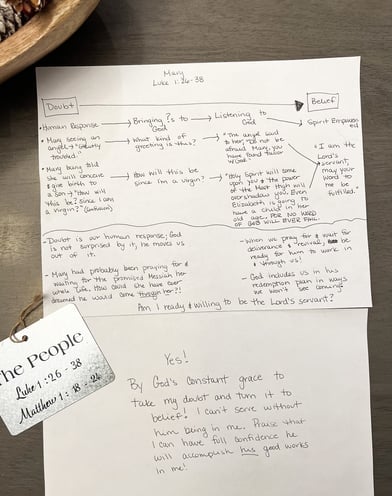 Mary
Luke 1:26-38
Doubt
Belief
•Human Response
Bringing ?s to
God
Listening to
God
Spirit Empowered
• Mary seeing an
angel → "Greatly
troubled."
What kind of
greeting is this?
"The angel said
to her, 'Do not be
afraid Mary, you
have found favor
w/God.'
• Mary being told
she will conceive
& give birth to
a son → "How will
this be? since I am
a virgin?" (Confusion)
How will this be
since I'm a virgin?
"Holy Spirit will come
upon you & the power
of the Most High will
overshadow you. Even
Elizabeth is going to
have a child in her
old age. FOR NO WORD
OF GOD WILL EVER FAIL.
"I am the
Lord's
servant,
may your
word to
me be
fulfilled."
- Doubt is our human response; God
is not surprised by it, he moves us
out of it.
- Mary had probably been praying for &
waiting for the promised Messiah her
whole life. How could she have ever
dreamed he would come through her?!
- When we pray for & wait for
deliverance & revival, be
ready for him to work in
& through us!
- God includes us in his
redemption plan in ways
we won't see coming.
Am I ready & willing to be the Lord's servant?
The People
Luke 1:26-38
Matthew 1:18-24
Yes!
By God's constant grace to
take my doubt and turn it to
belief! I can't serve without
him being in me. Praise that
I can have full confidence he
will accomplish his good works
in me!